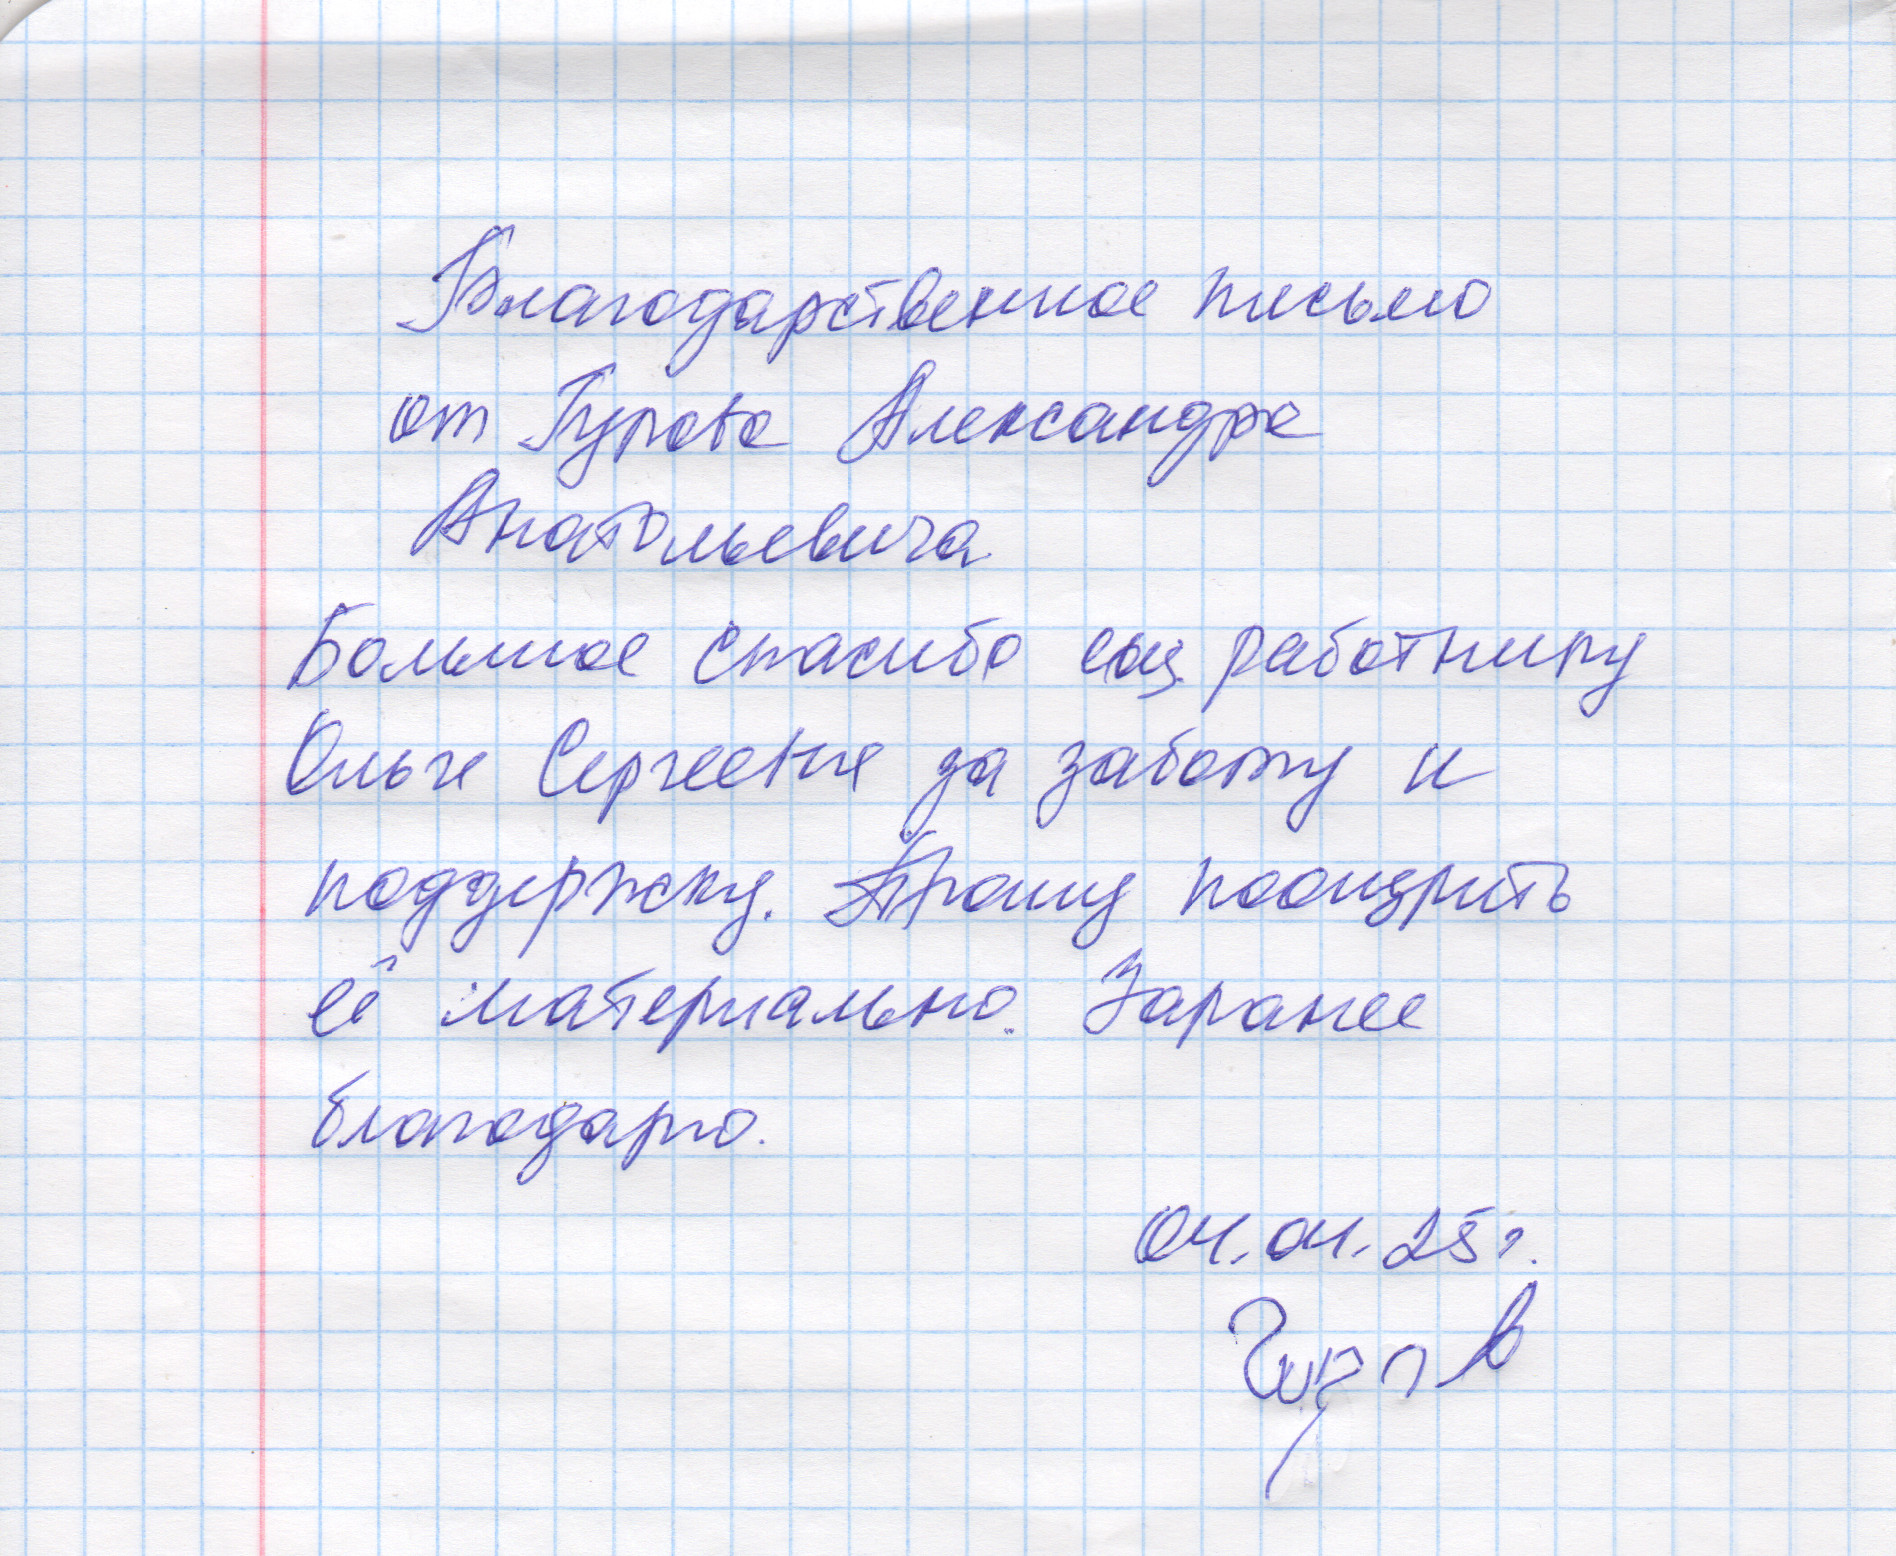 Благодарственное письмо
от Гурова Александра
Анатольевича
Большое спасибо соц. работнику
Ольге Сергеевне за заботу и
поддержку. Прошу поощрить
её материально. Заранее
благодарю.
04.04.25 г.